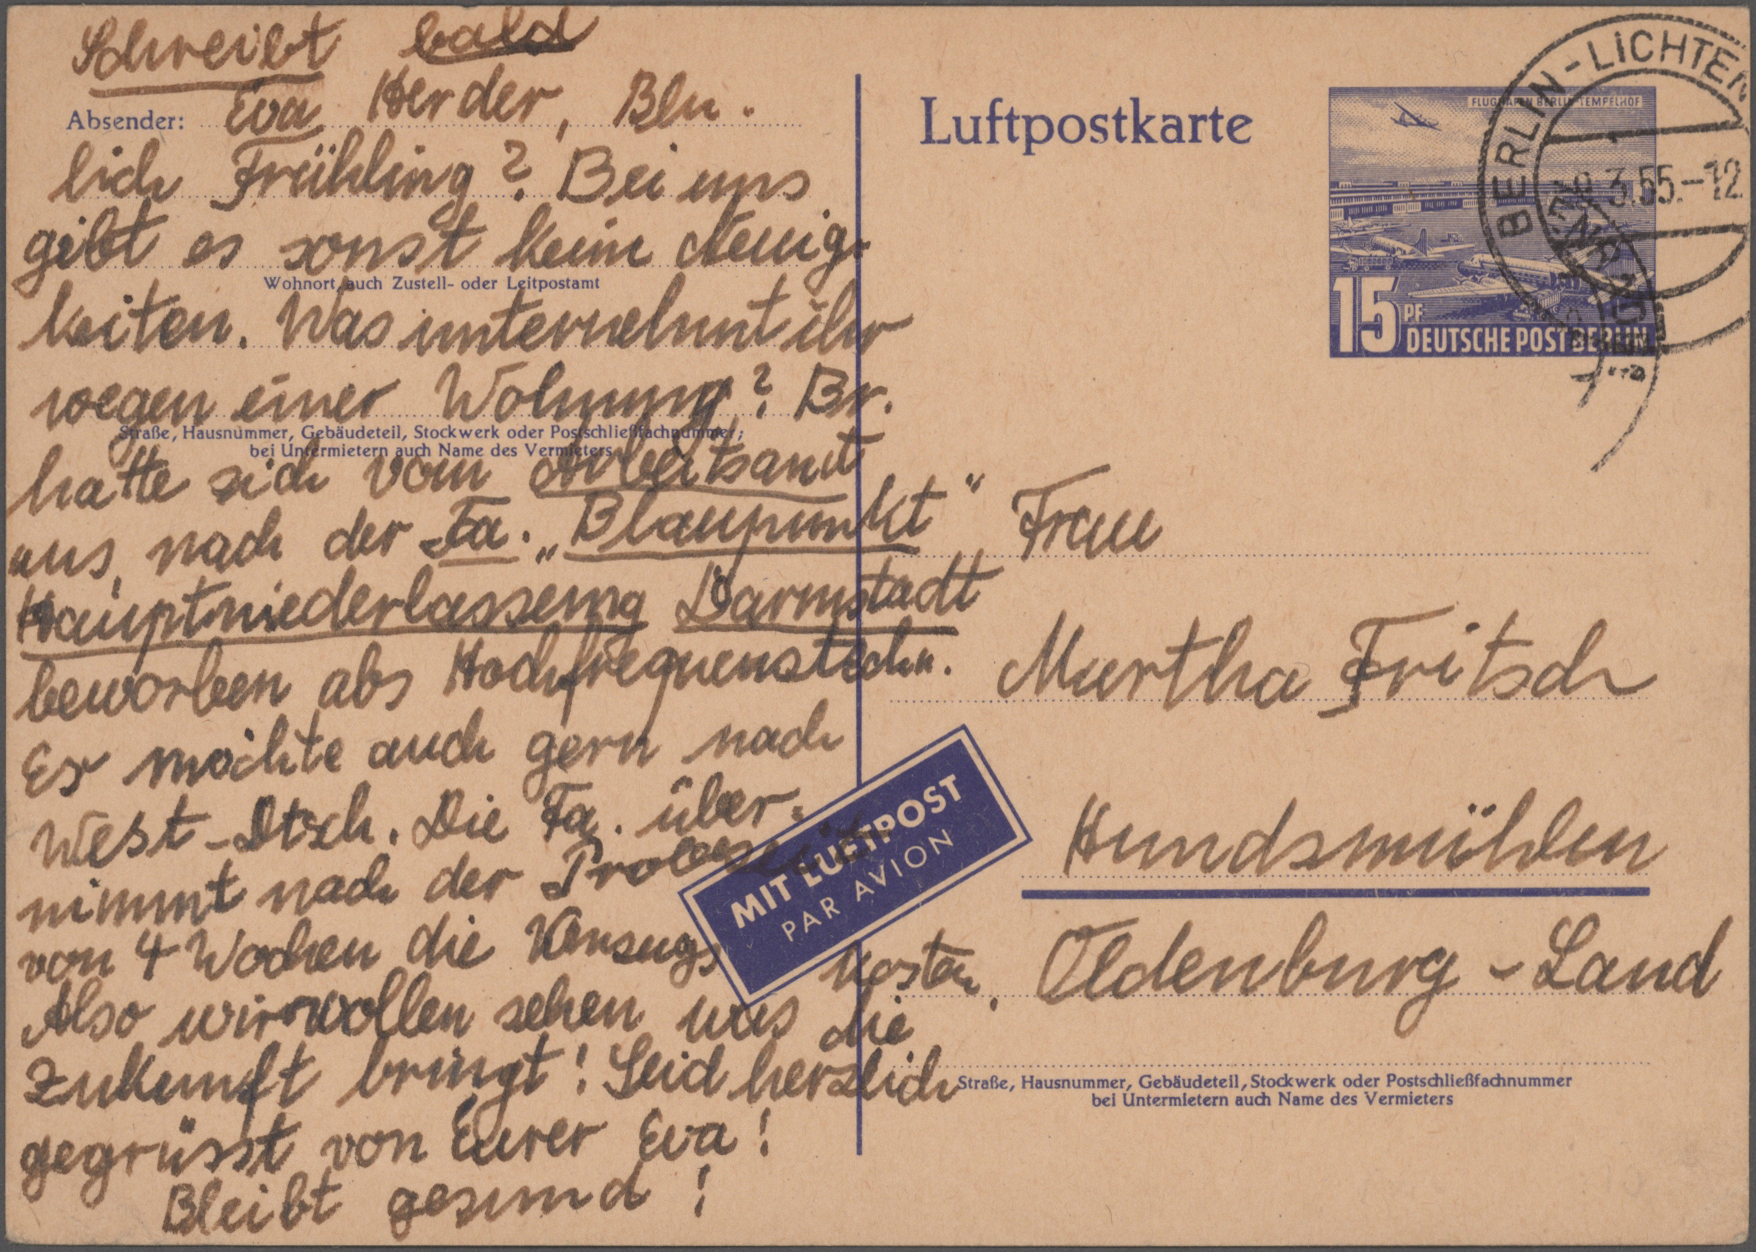 Schreibt bald
Absender: Eva Herder, Bln.
lich Frühling? Bei uns
gibt es sonst kein Neuig-
Wohnort, auch Zustell- oder Leitpostamt
keiten. Was unternehmt ihr
wegen einer Wohnung? Br.
Straße, Hausnummer, Gebäudeteil, Stockwerk oder Postschließfachnummer;
bei Untermietern auch Name des Vermieters
hatte sich vom Arbeitsamt
aus, nach der Fa. „Blaupunkt“
Hauptniederlassung Darmstadt
beworben als Hochfrequenztechn.
Er möchte auch gern nach
West-Dtsch. Die Fa. über-
nimmt nach der Probezeit
von 4 Wochen die Umzugs kosten.
Also wir wollen sehen was die
Zukunft bringt! Seid herzlich
gegrüsst von Eurer Eva!
Bleibt gesund!
Luftpostkarte
FLUGHAFEN BERLIN-TEMPELHOF
15 PF
DEUTSCHE POST BERLIN
BERLIN-LICHTEN
3.55.-12
MIT LUFTPOST
PAR AVION
Frau
Martha Fritsch
Hundsmühlen
Oldenburg-Land
Straße, Hausnummer, Gebäudeteil, Stockwerk oder Postschließfachnummer
bei Untermietern auch Name des Vermieters